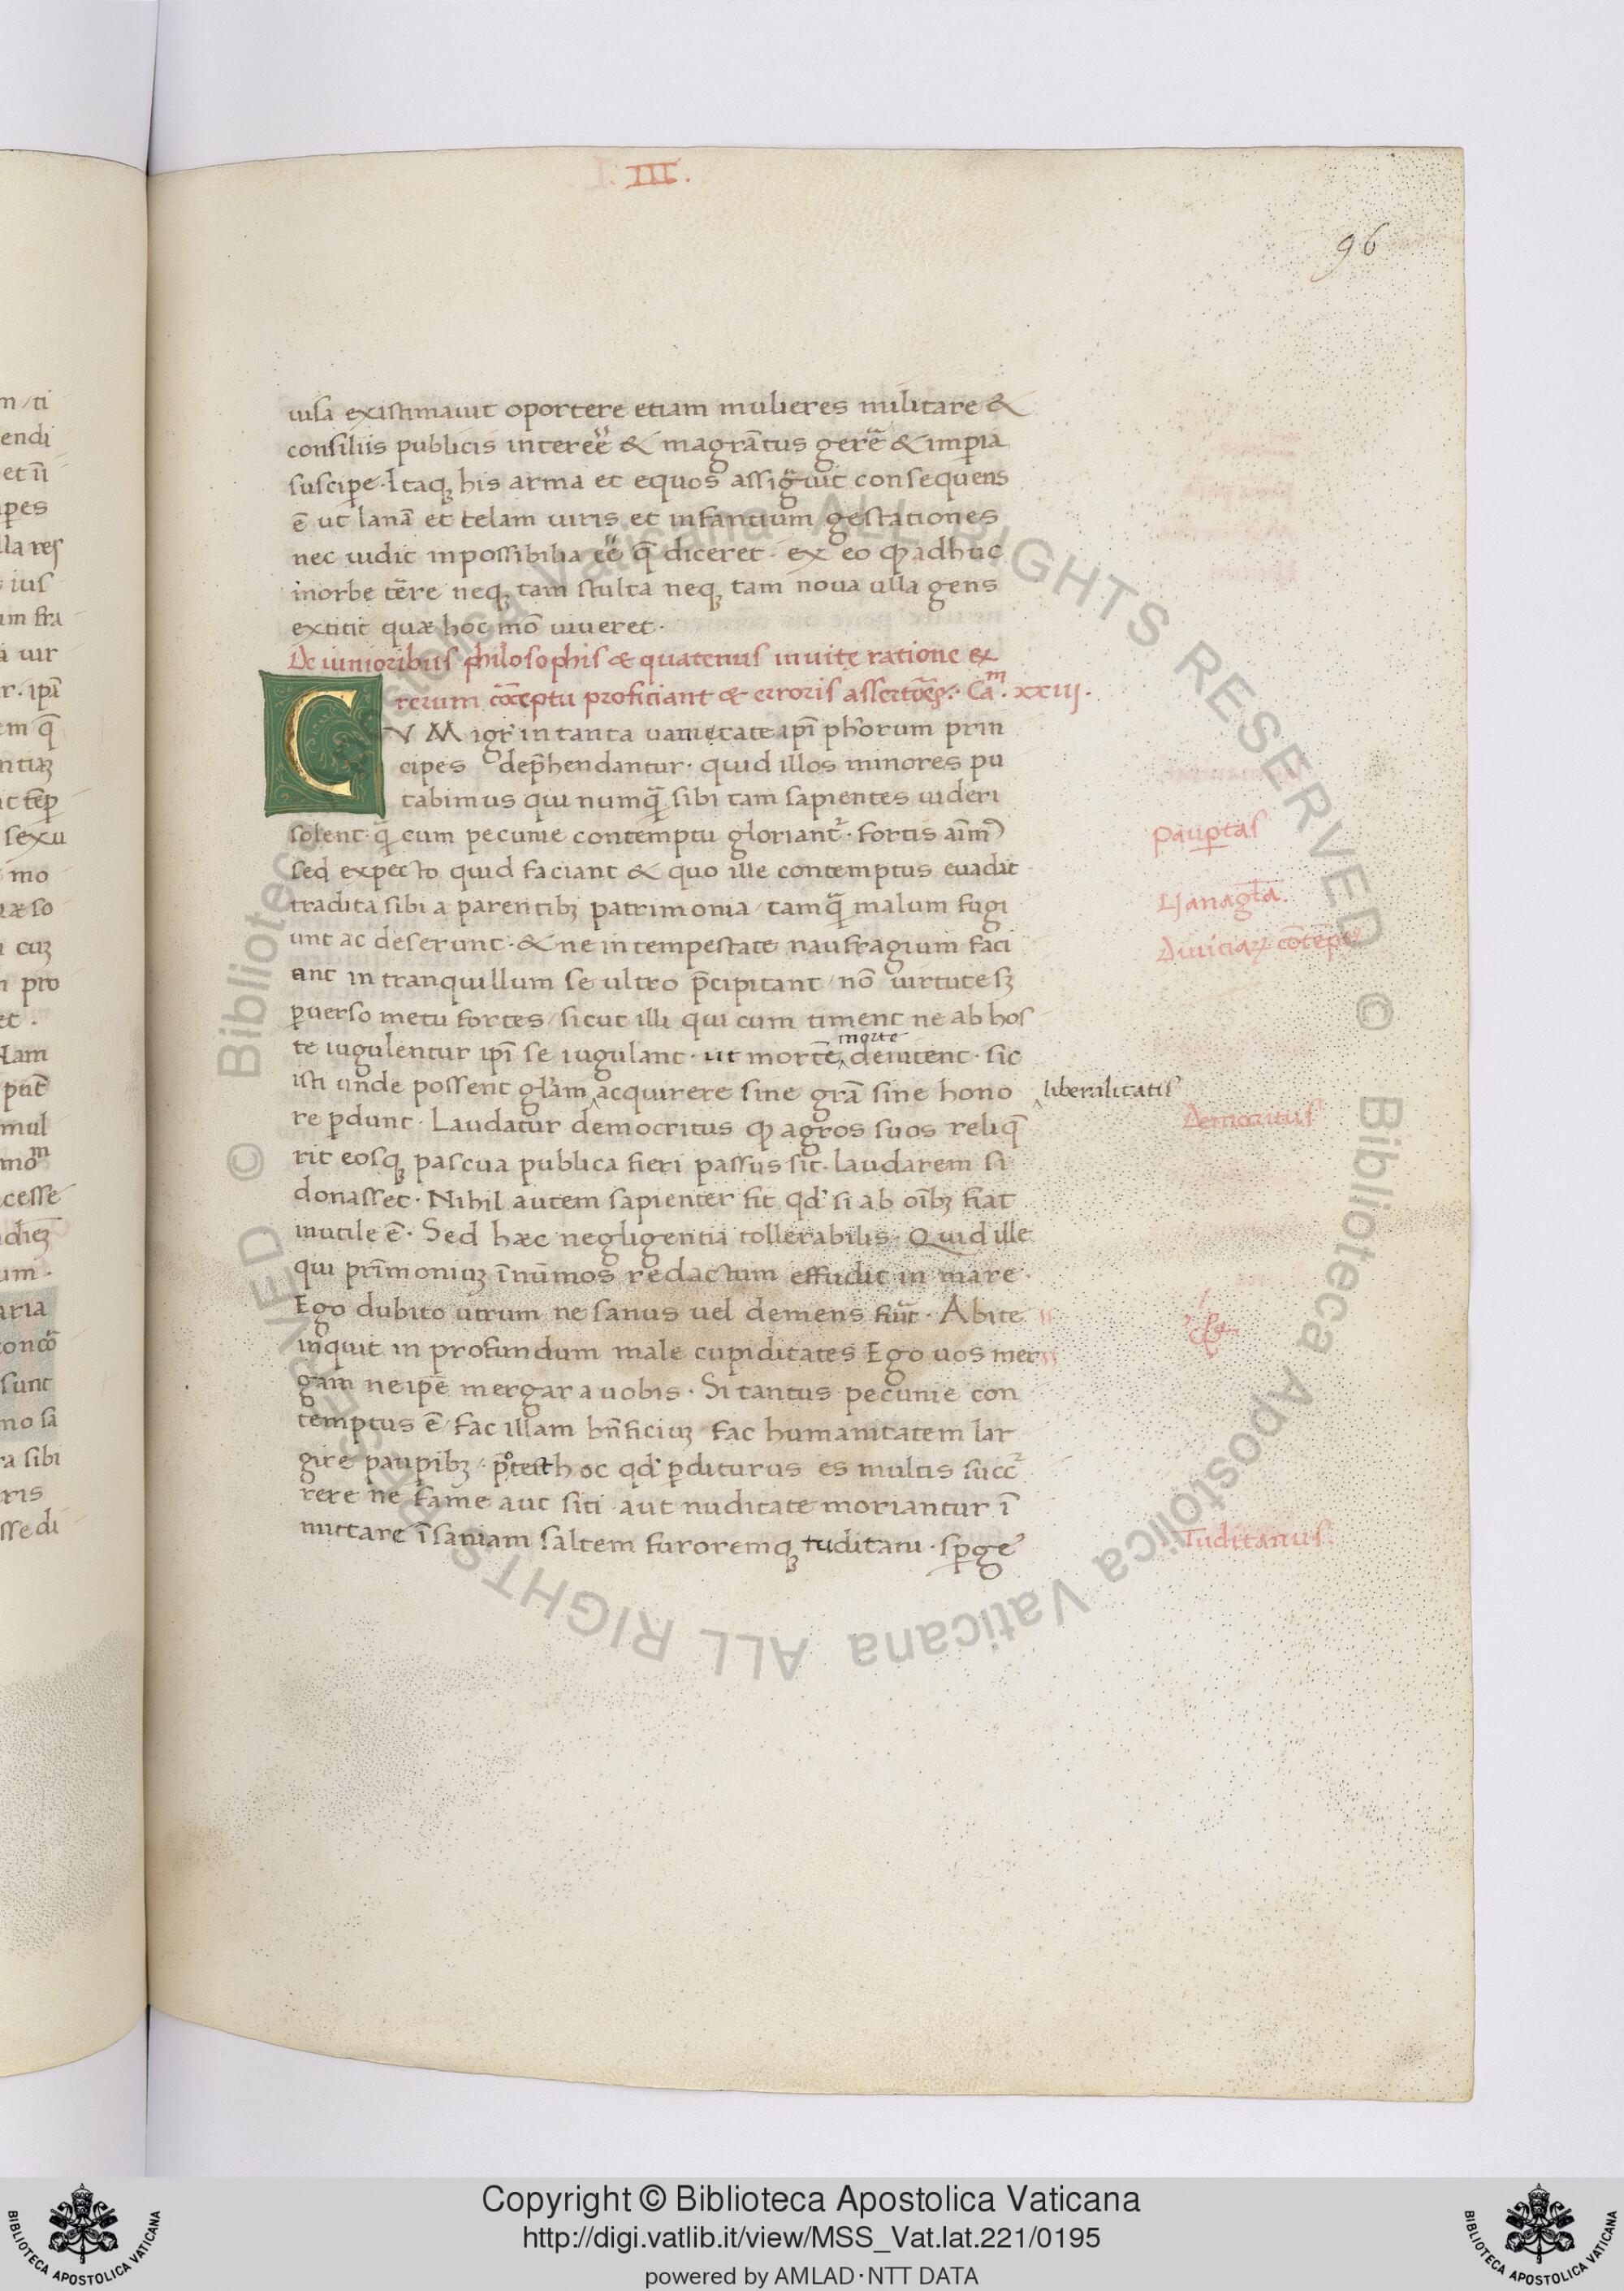 .III.
96
uisa existimauit oportere etiam mulieres militare &
consiliis publicis intereē & magrātus gerē & impia
suscipe. Itaq; his arma et equos assigūit consequens
ē ut lanā et telam uiris et infantium gestationes
nec uidit inpossibilia eē q̄ diceret. ex eo q̨ adhuc
inorbe tēre neq; tam stulta neq; tam noua ulla gens
extitit quæ hoc mō uiueret.
De iunioribus philosophis & quatenus inuite ratione ex
terum cōteptu proficiant & erroris assertōeș. Caᵐ. xxiij.
CVM igr̄ in tanta uarietate ipī ph'orum prin
cipes dep̄hendantur. quid illos minores pu
tabimus qui numq̄ sibi tam sapientes uideri
solent. q̄ cum pecunie contemptu gloriant̄. fortis aīm
sed expecto quid faciant & quo ille contemptus euadit
tradita sibi a parentib; patrimonia / tamq̄ malum fugi
unt ac deserunt. & ne in tempestate naufragium faci
ant in tranquillum se ultro p̄cipitant / nō uirtute s;
puerso metu fortes / sicut illi qui cum timent ne ab hos
te iugulentur ipī se iugulant. ut mortē morte deuitent. sic
isti unde possent gl'am acquirere sine grā sine hono liberalitatis
re pdunt. Laudatur democritus q̨ agros suos reliq̄
rit eosq; pascua publica fieri passus sit. laudarem si
donasset. Nihil autem sapienter fit qd' si ab oīb; fiat
inutile ē. Sed hæc negligentia tollerabilis. Quid ille
qui prīmoniuȝ ī nūmos redactum effudit in mare.
Ego dubito utrum ne sanus uel demens fūit. Abite
inquit in profundum male cupiditates Ego uos mer
gam ne ipē mergar a uobis. Si tantus pecunie con
temptus ē / fac illam bn̄ficiuȝ / fac humanitatem lar
gire paupib; . p̊test hoc qd' pditurus es multis succ̄
rere ne fame aut siti aut nuditate moriantur ī
mittare īsaniam saltem furoremq; tuditani. spge
pauptas
Diuiciaꝝ cōtept
Democritus
Tuditanus.
Copyright © Biblioteca Apostolica Vaticana
http://digi.vatlib.it/view/MSS_Vat.lat.221/0195
powered by AMLAD·NTT DATA
BIBLIOTECA APOSTOLICA VATICANA
BIBLIOTECA APOSTOLICA VATICANA
© Biblioteca Apostolica Vaticana ALL RIGHTS RESERVED © Biblioteca Apostolica Vaticana ALL RIGHTS RESERVED